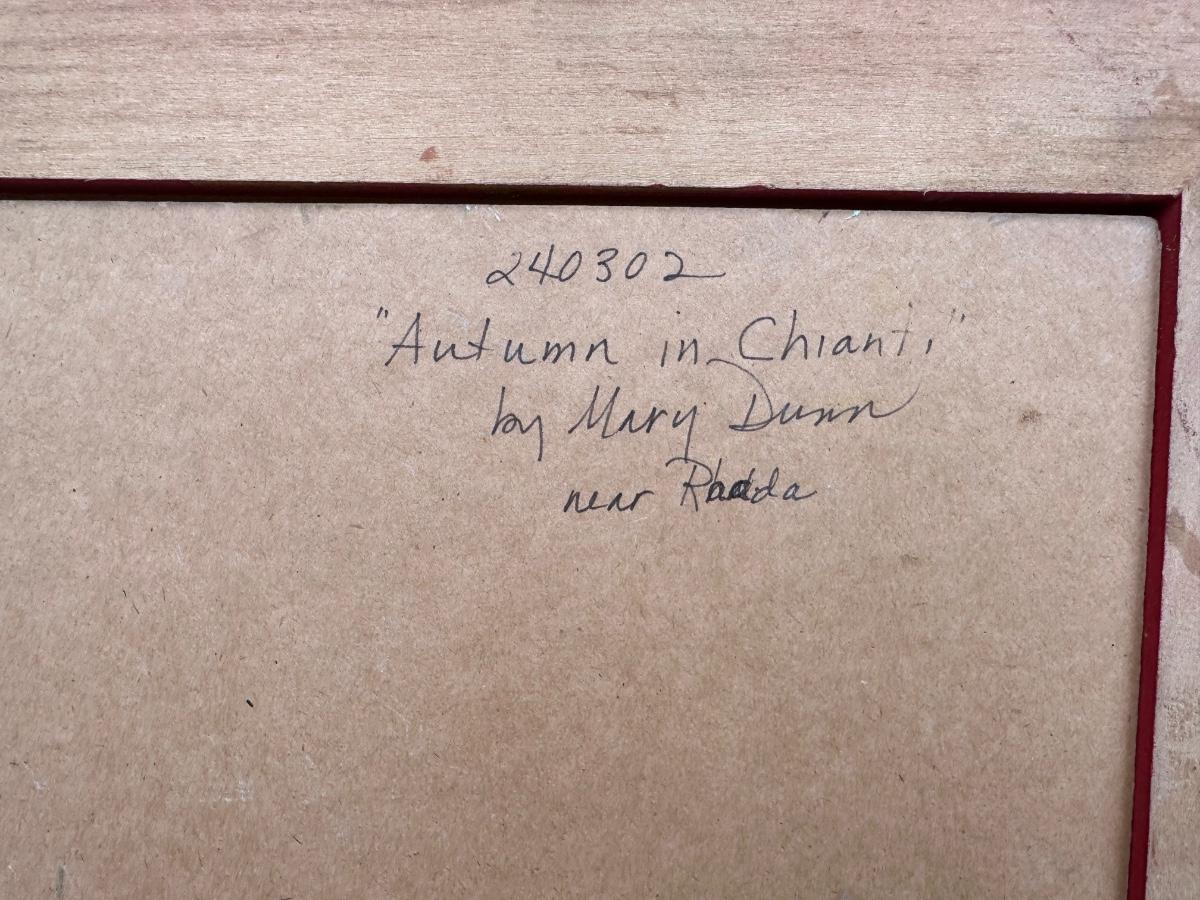 240302
"Autumn in Chianti"
by Mary Dunn
near Radda